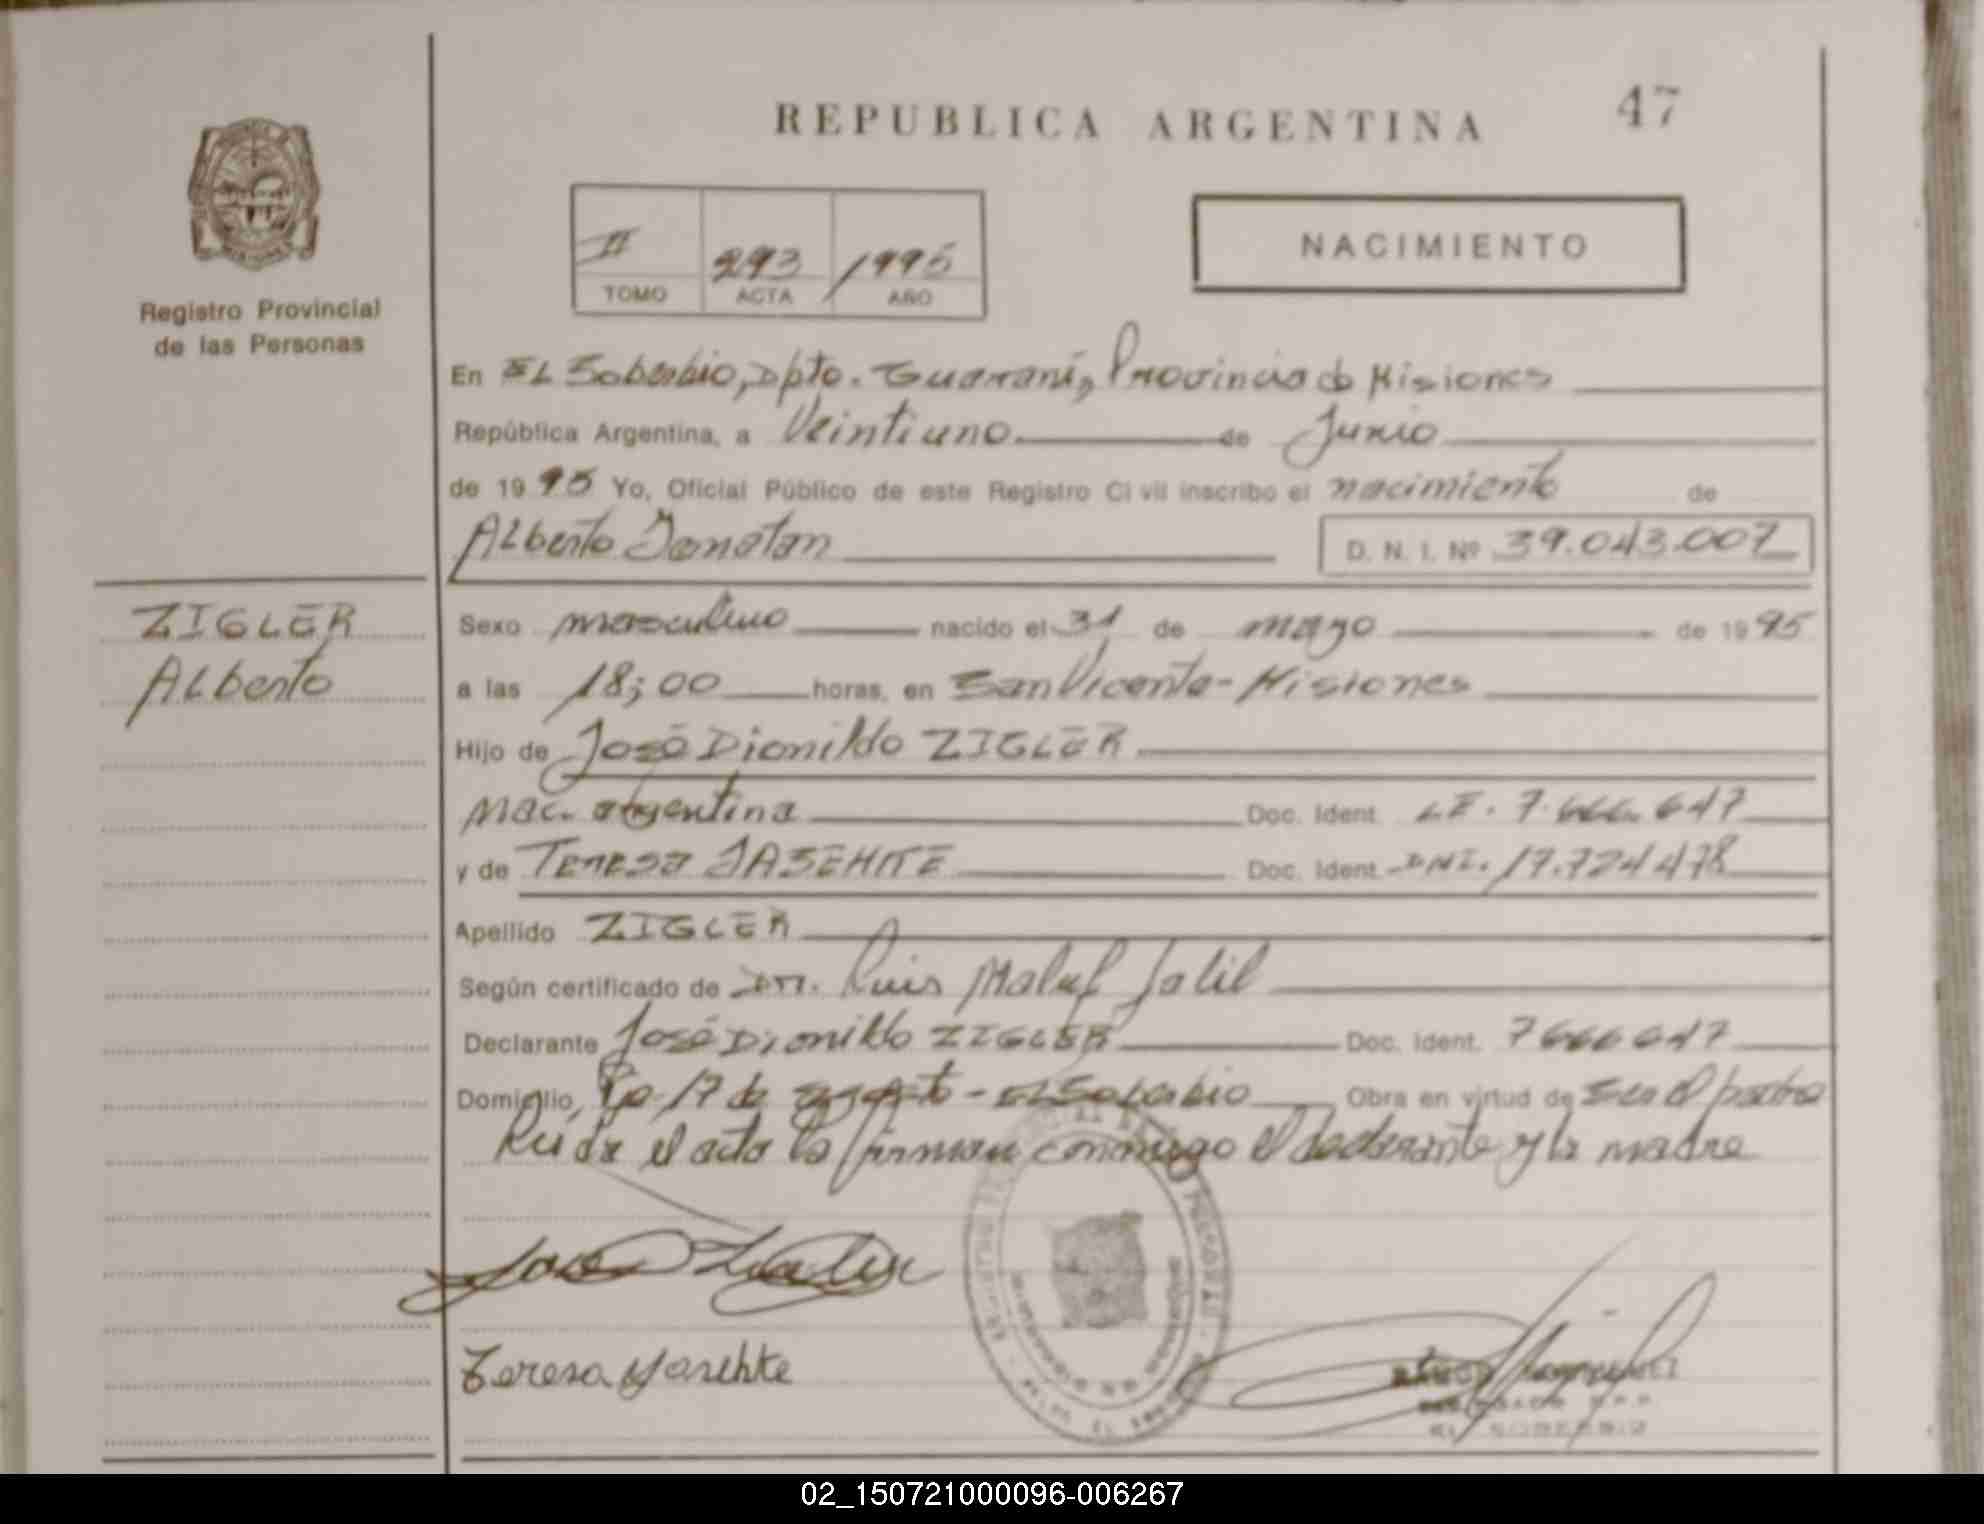 REPUBLICA ARGENTINA
47
Registro Provincial
de las Personas
II 293 1995
TOMO ACTA AÑO
NACIMIENTO
En EL Soberbio, Dpto. Guaraní, Provincia de Misiones
República Argentina, a Veintiuno de Junio
de 1995 Yo, Oficial Público de este Registro Civil inscribo el nacimiento de
Alberto Jonatan D. N. I. Nº 39.043.007
ZIGLER
Alberto
Sexo masculino nacido el 31 de mayo de 1995
a las 18;00 horas, en San Vicente - Misiones
Hijo de José Dionildo ZIGLER
Nac. argentina Doc. Ident. LE. 7.666.647
y de Teresa JASEHKE Doc. Ident. DNI. 17.724.478
Apellido ZIGLER
Según certificado de Dr. Luis Maluf Jalil
Declarante José Dionildo ZIGLER Doc. Ident. 7666647
Domicilio, 17 de agosto - EL Soberbio Obra en virtud de Ser el padre
Leída el acta la firman conmigo el declarante y la madre
Teresa
EL SOBERBIO
02_150721000096-006267